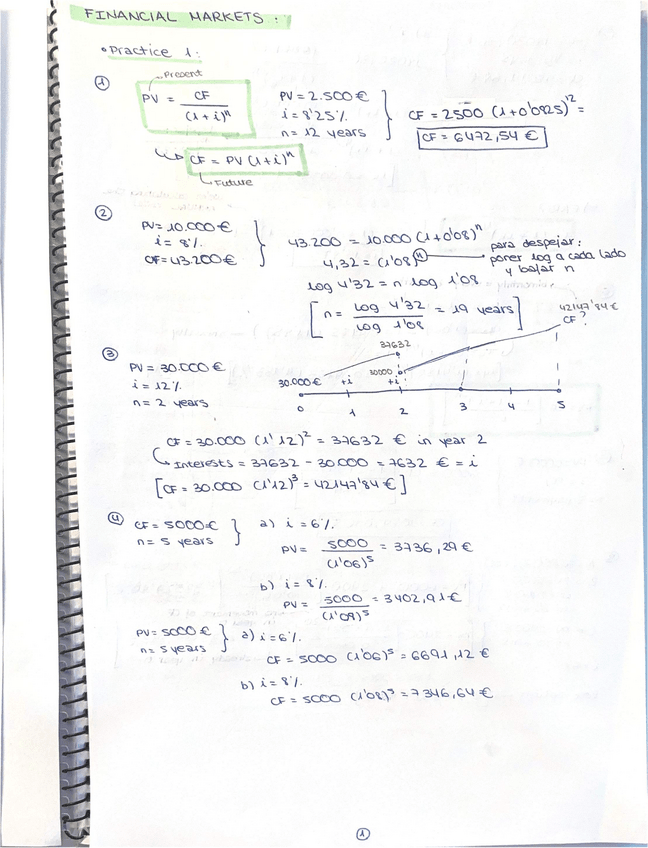 FINANCIAL MARKETS :
• Practice 1 :
①
Present
PV = CF / (1+i)ⁿ
↳ CF = PV (1+i)ⁿ
Future
PV = 2.500 €
i = 8'25 %
n = 12 years
CF = 2500 (1+0'0825)¹² =
CF = 6472,54 €
②
PV = 10.000 €
i = 8 %
CF = 43.200 €
43.200 = 10.000 (1+0'08)ⁿ
4,32 = (1'08)ⁿ
para despejar :
poner log a cada lado
y bajar n
log 4'32 = n log 1'08
[ n = log 4'32 / log 1'08 = 19 years ]
③
PV = 30.000 €
i = 12 %
n = 2 years
42147'84 €
CF ?
37632
30000
30.000 € +i +i
0 1 2 3 4 5
CF = 30.000 (1'12)² = 37632 € in year 2
↳ Interests = 37632 - 30.000 = 7632 € = i
[ CF = 30.000 (1'12)³ = 42147'84 € ]
④
CF = 5000 €
n = 5 years
a) i = 6 %
PV = 5000 / (1'06)⁵ = 3736,29 €
b) i = 8 %
PV = 5000 / (1'08)⁵ = 3402,91 €
PV = 5000 €
n = 5 years
a) i = 6 %
CF = 5000 (1'06)⁵ = 6691,12 €
b) i = 8 %
CF = 5000 (1'08)⁵ = 7346,64 €
①